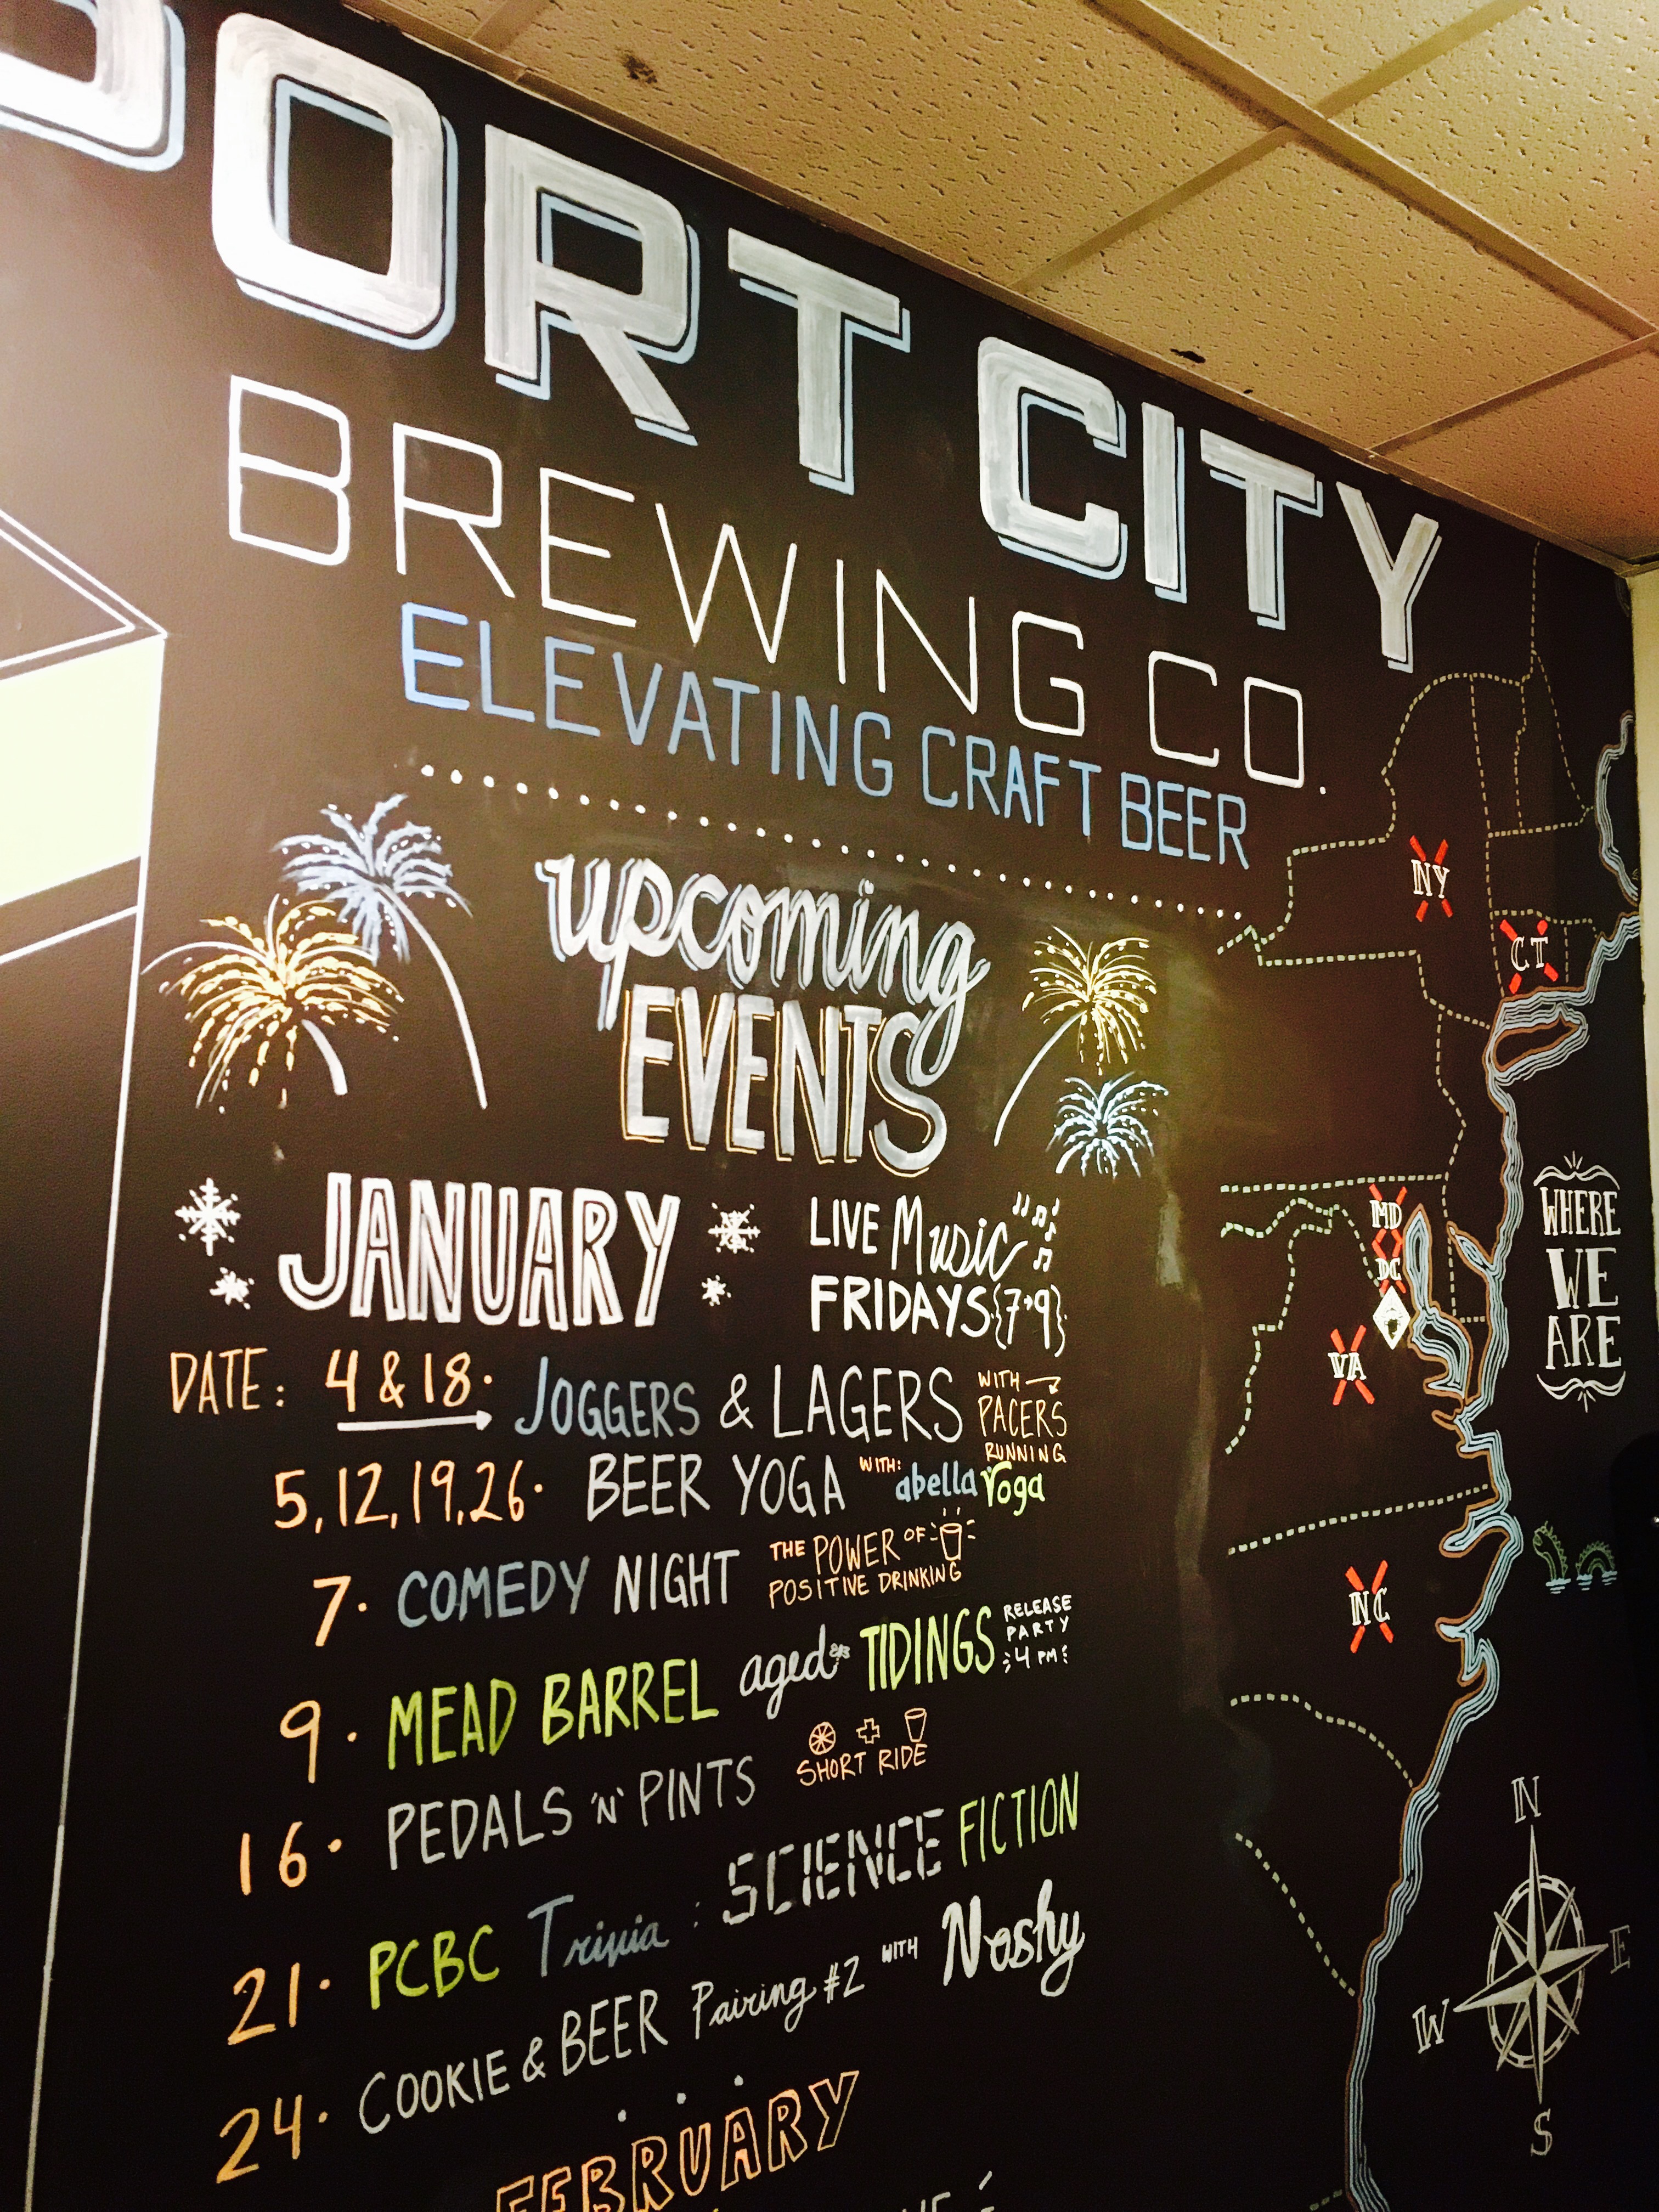 PORT CITY
BREWING CO.
ELEVATING CRAFT BEER
upcoming
EVENTS
JANUARY
LIVE Music
FRIDAYS {7→9}
DATE: 4 & 18. JOGGERS & LAGERS WITH PACERS RUNNING
5, 12, 19, 26. BEER YOGA WITH: abella Yoga
7. COMEDY NIGHT THE POWER OF POSITIVE DRINKING
9. MEAD BARREL aged TIDINGS RELEASE PARTY 4 PM
16. PEDALS 'N' PINTS SHORT RIDE
21. PCBC Trivia: SCIENCE FICTION
24. COOKIE & BEER Pairing #2 WITH Noshy
FEBRUARY
NY
CT
MD
DC
VA
NC
WHERE
WE
ARE
N
E
W
S